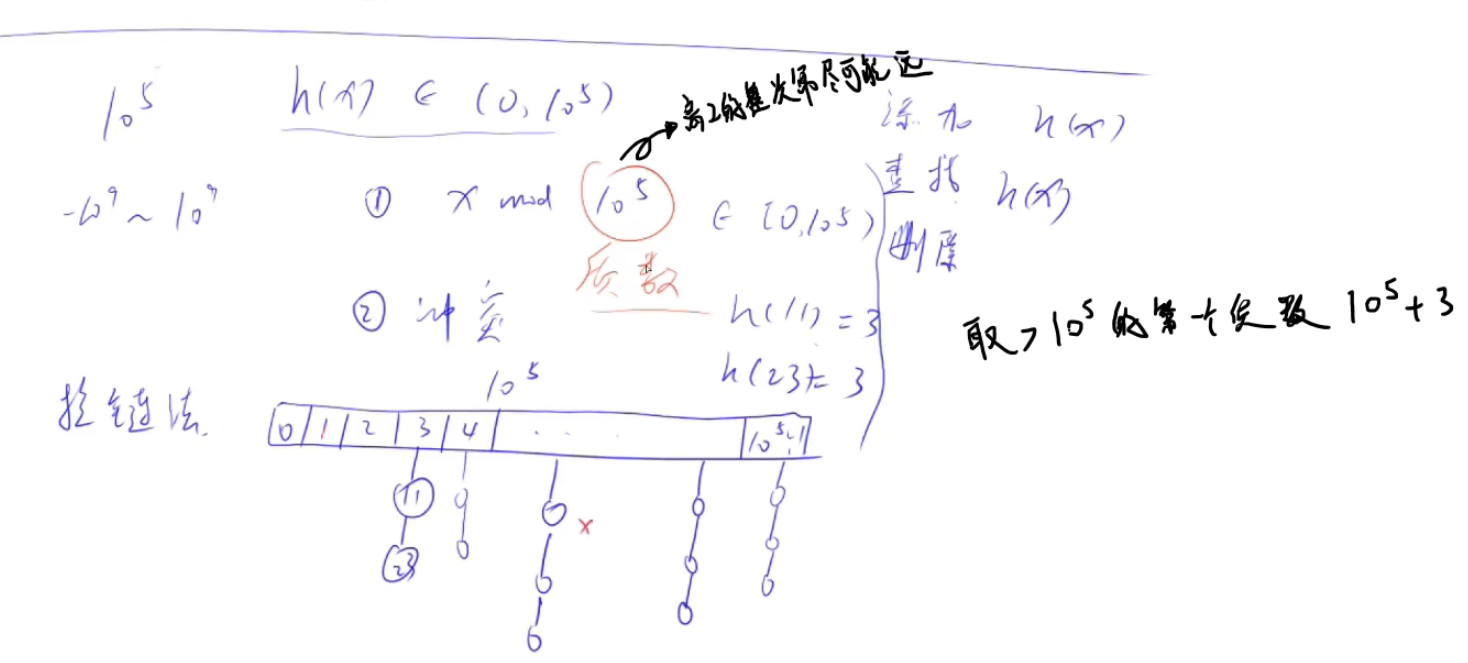 10^5 h(x) ∈ (0, 10^5)
离2的整次幂尽可能远
添加 h(x)
-10^9 ~ 10^9 ① x mod 10^5 ∈ (0, 10^5)
查找 h(x)
删除
质数
② 冲突
h(11) = 3
h(23) = 3
取>10^5的第一个质数 10^5+3
拉链法.
10^5
0 1 2 3 4 . . . 10^5-1
11
23
x